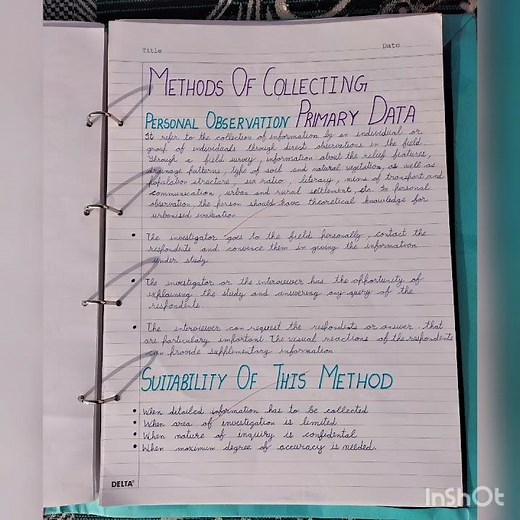 Title Date
METHODS OF COLLECTING
PERSONAL OBSERVATION PRIMARY DATA
It refer to the collection of information by an individual or
group of individuals through direct observations in the field.
Through a field survey, information about the relief features,
drainage patterns, type of soil and natural vegetation, as well as
population structure, sex ratio, literacy, means of transport and
communication, urban and rural settlement, etc. In personal
observation, the person should have theoretical knowledge for
unbiased
• The investigator goes to the field personally, contact the
respondents and convince them in giving the information
under study.
• The investigator or the interviewer has the opportunity of
explaining the study and answering any query of the
respondents.
• The interviewer can request the respondents or answer that
are particulary important. The visual reactions of the respondents
can provide supplementary information
SUITABILITY OF THIS METHOD
• When detailed information has to be collected
• When area of investigation is limited
• When nature of enquiry is confidental
• When maximum degree of accuracy is needed.
DELTA
InShOt